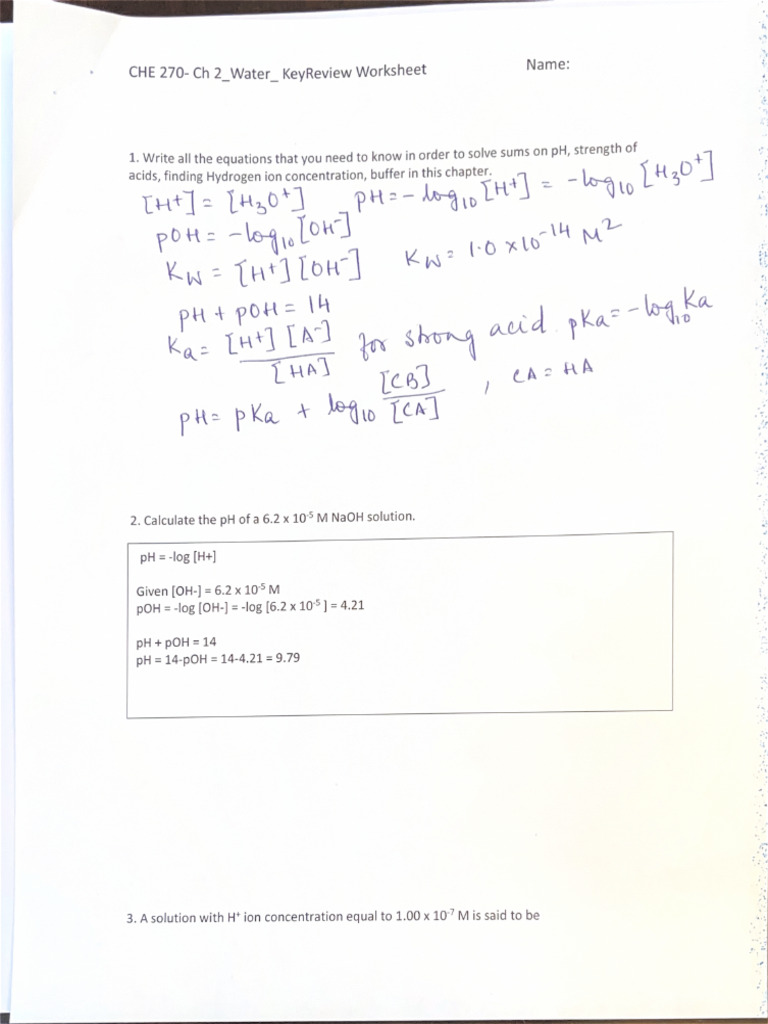 CHE 270- Ch 2_Water_ KeyReview Worksheet Name:
1. Write all the equations that you need to know in order to solve sums on pH, strength of
acids, finding Hydrogen ion concentration, buffer in this chapter.
[H+] = [H₃O⁺] pH = -log₁₀ [H+] = -log₁₀ [H₃O⁺]
pOH = -log₁₀ [OH⁻]
Kw = [H+] [OH⁻] Kw = 1.0 x 10⁻¹⁴ M²
pH + pOH = 14
Ka = [H+] [A⁻] / [HA] for strong acid. pKa = -log₁₀ Ka
pH = pKa + log₁₀ [CB] / [CA] , CA = HA
2. Calculate the pH of a 6.2 x 10⁻⁵ M NaOH solution.
pH = -log [H+]
Given [OH-] = 6.2 x 10⁻⁵ M
pOH = -log [OH-] = -log [6.2 x 10⁻⁵ ] = 4.21
pH + pOH = 14
pH = 14-pOH = 14-4.21 = 9.79
3. A solution with H⁺ ion concentration equal to 1.00 x 10⁻⁷ M is said to be